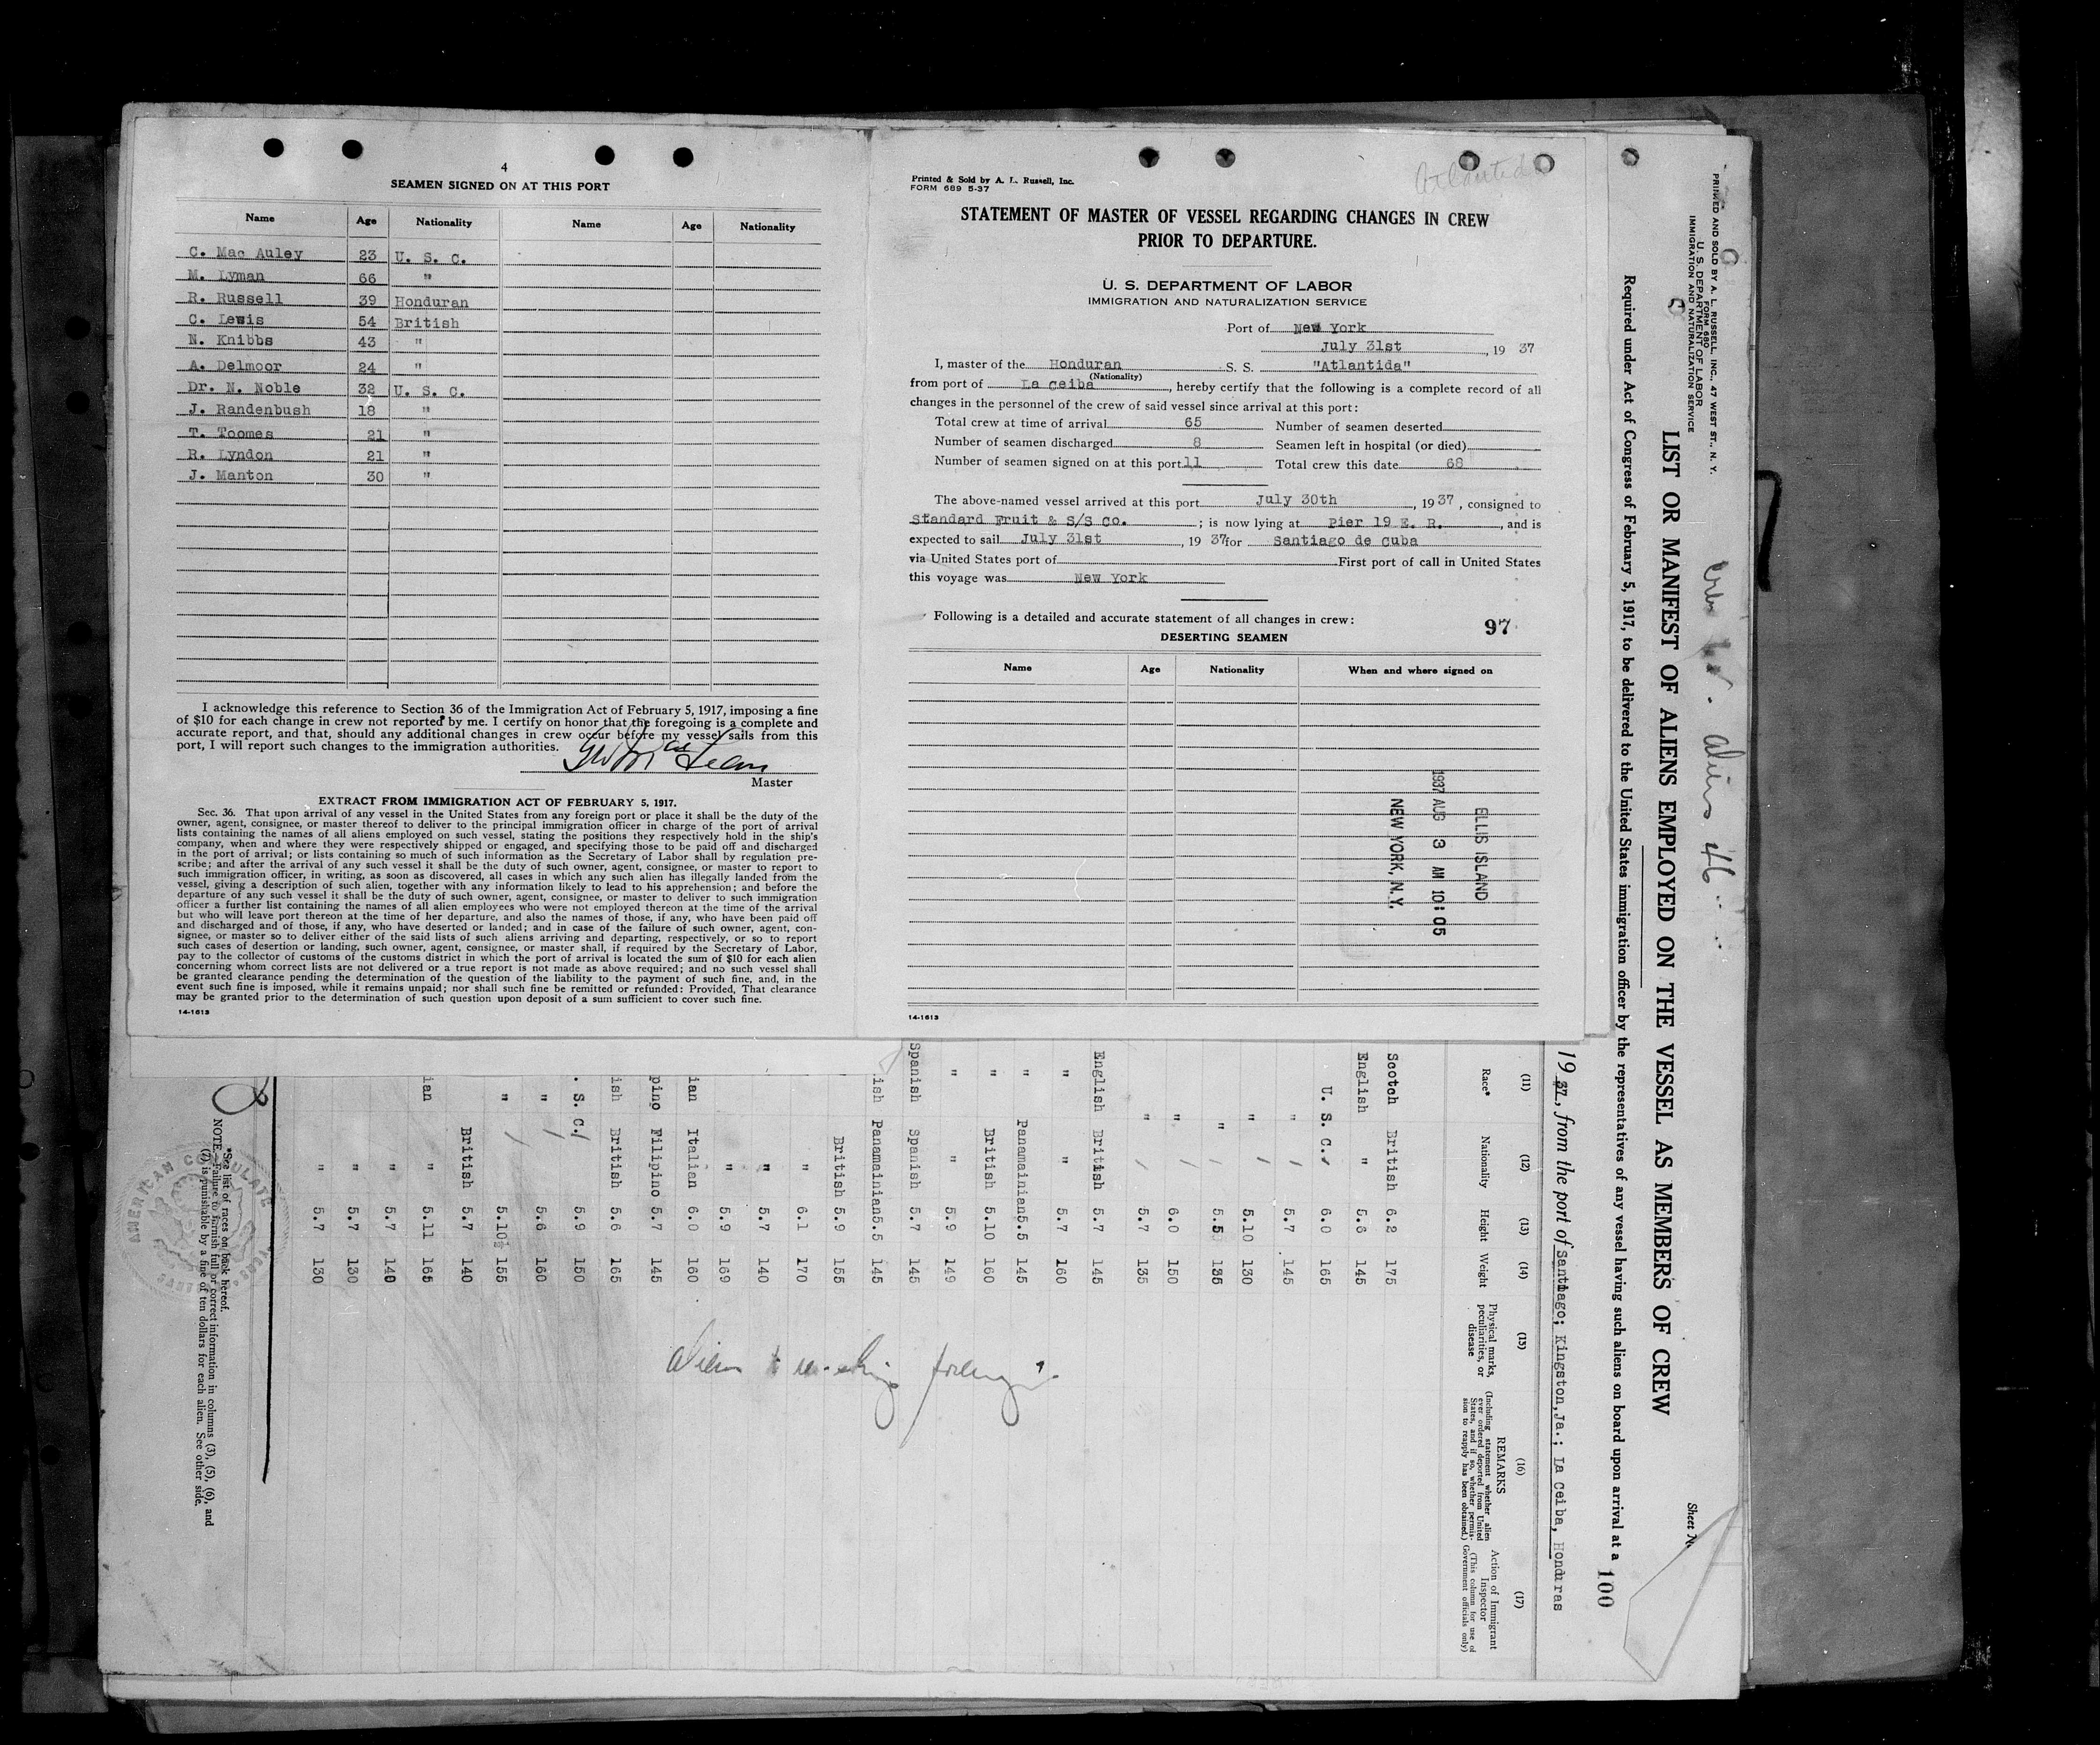 4
SEAMEN SIGNED ON AT THIS PORT
Name Age Nationality Name Age Nationality
C. Mac Auley 23 U. S. C.
M. Lyman 66 "
R. Russell 39 Honduran
C. Lewis 54 British
N. Knibbs 43 "
A. Delmoor 24 "
Dr. N. Noble 32 U. S. C.
J. Randenbush 18 "
T. Toomes 21 "
R. Lyndon 21 "
J. Manton 30 "
I acknowledge this reference to Section 36 of the Immigration Act of February 5, 1917, imposing a fine
of $10 for each change in crew not reported by me. I certify on honor that the foregoing is a complete and
accurate report, and that, should any additional changes in crew occur before my vessel sails from this
port, I will report such changes to the immigration authorities.
Master
EXTRACT FROM IMMIGRATION ACT OF FEBRUARY 5, 1917.
Sec. 36. That upon arrival of any vessel in the United States from any foreign port or place it shall be the duty of the
owner, agent, consignee, or master thereof to deliver to the principal immigration officer in charge of the port of arrival
lists containing the names of all aliens employed on such vessel, stating the positions they respectively hold in the ship's
company, when and where they were respectively shipped or engaged, and specifying those to be paid off and discharged
in the port of arrival; or lists containing so much of such information as the Secretary of Labor shall by regulation pre-
scribe; and after the arrival of any such vessel it shall be the duty of such owner, agent, consignee, or master to report to
such immigration officer, in writing, as soon as discovered, all cases in which any such alien has illegally landed from the
vessel, giving a description of such alien, together with any information likely to lead to his apprehension; and before the
departure of any such vessel it shall be the duty of such owner, agent, consignee, or master to deliver to such immigration
officer a further list containing the names of all alien employees who were not employed thereon at the time of the arrival
but who will leave port thereon at the time of her departure, and also the names of those, if any, who have been paid off
and discharged and of those, if any, who have deserted or landed; and in case of the failure of such owner, agent, con-
signee, or master so to deliver either of the said lists of such aliens arriving and departing, respectively, or so to report
such cases of desertion or landing, such owner, agent, consignee, or master shall, if required by the Secretary of Labor,
pay to the collector of customs of the customs district in which the port of arrival is located the sum of $10 for each alien
concerning whom correct lists are not delivered or a true report is not made as above required; and no such vessel shall
be granted clearance pending the determination of the question of the liability to the payment of such fine, and, in the
event such fine is imposed, while it remains unpaid; nor shall such fine be remitted or refunded: Provided, That clearance
may be granted prior to the determination of such question upon deposit of a sum sufficient to cover such fine.
14-1613
Atlantida
Printed & Sold by A. L. Russell, Inc.
FORM 689 5-37
STATEMENT OF MASTER OF VESSEL REGARDING CHANGES IN CREW
PRIOR TO DEPARTURE.
U. S. DEPARTMENT OF LABOR
IMMIGRATION AND NATURALIZATION SERVICE
Port of New York
July 31st, 19 37
I, master of the Honduran S. S. "Atlantida"
(Nationality)
from port of La Ceiba, hereby certify that the following is a complete record of all
changes in the personnel of the crew of said vessel since arrival at this port:
Total crew at time of arrival 65 Number of seamen deserted
Number of seamen discharged 8 Seamen left in hospital (or died)
Number of seamen signed on at this port 11 Total crew this date 68
The above-named vessel arrived at this port July 30th, 19 37, consigned to
Standard Fruit & S/S Co.; is now lying at Pier 19 E. R., and is
expected to sail July 31st, 19 37 for Santiago de Cuba
via United States port of First port of call in United States
this voyage was New York
Following is a detailed and accurate statement of all changes in crew:
97
DESERTING SEAMEN
Name Age Nationality When and where signed on
ELLIS ISLAND
1937 AUG 3 AM 10:05
NEW YORK, N.Y.
14-1613
PRINTED AND SOLD BY A. L. RUSSELL, INC., 47 WEST ST., N. Y.
FORM 680
U. S. DEPARTMENT OF LABOR
IMMIGRATION AND NATURALIZATION SERVICE
aliens 46
Sheet
LIST OR MANIFEST OF ALIENS EMPLOYED ON THE VESSEL AS MEMBERS OF CREW
Required under Act of Congress of February 5, 1917, to be delivered to the United States immigration officer by the representatives of any vessel having such aliens on board upon arrival at a
100
19 37, from the port of Santiago; Kingston, Ja.; La Ceiba, Honduras
(11) (12) (13) (14) (15) (16) (17)
Race* Nationality Height Weight Physical marks, peculiarities, or disease
REMARKS
(Including statement whether alien
ever ordered deported from United
States, and if so, whether permis-
sion to reapply has been obtained.)
Action of Immigrant
Inspector
(This column for use of
Government officials only)
Scotch British 6.2 175
English " 5.6 145
U. S. C. 6.0 165
" 5.7 145
" 5.10 130
" 5.5 135
" 6.0 150
" 5.7 135
English British 5.7 145
" " 5.7 160
" Panamainian 5.5 145
" British 5.10 160
" " 5.9 149
Spanish Spanish 5.7 145
ish Panamainian 5.5 145
British 5.9 155
" 6.1 170
" 5.7 140
" 5.9 159
ian Italian 6.0 160
pino Filipino 5.7 145
ish British 5.6 165
. S. C. 5.9 150
" 5.6 160
" 5.10½ 155
British 5.7 140
ian " 5.11 165
" 5.7 140
" 5.7 130
" 5.7 130
*See list of races on back hereof.
NOTE.—Failure to furnish full or correct information in columns (3), (5), (6), and
(7) is punishable by a fine of ten dollars for each alien. See other side.
AMERICAN CONSULATE